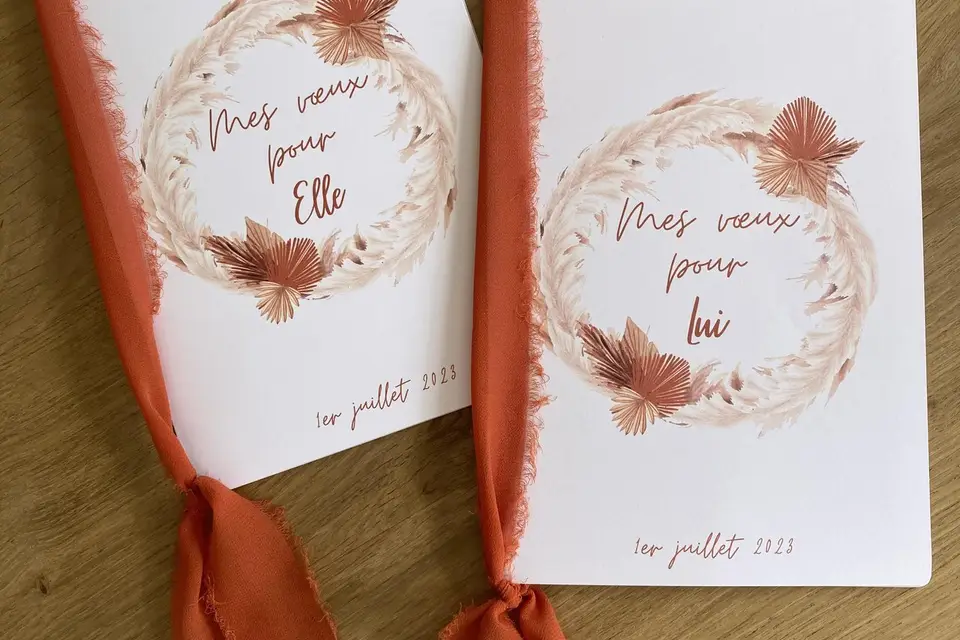 Mes vœux
pour
Elle
1er juillet 2023
Mes vœux
pour
Lui
1er juillet 2023